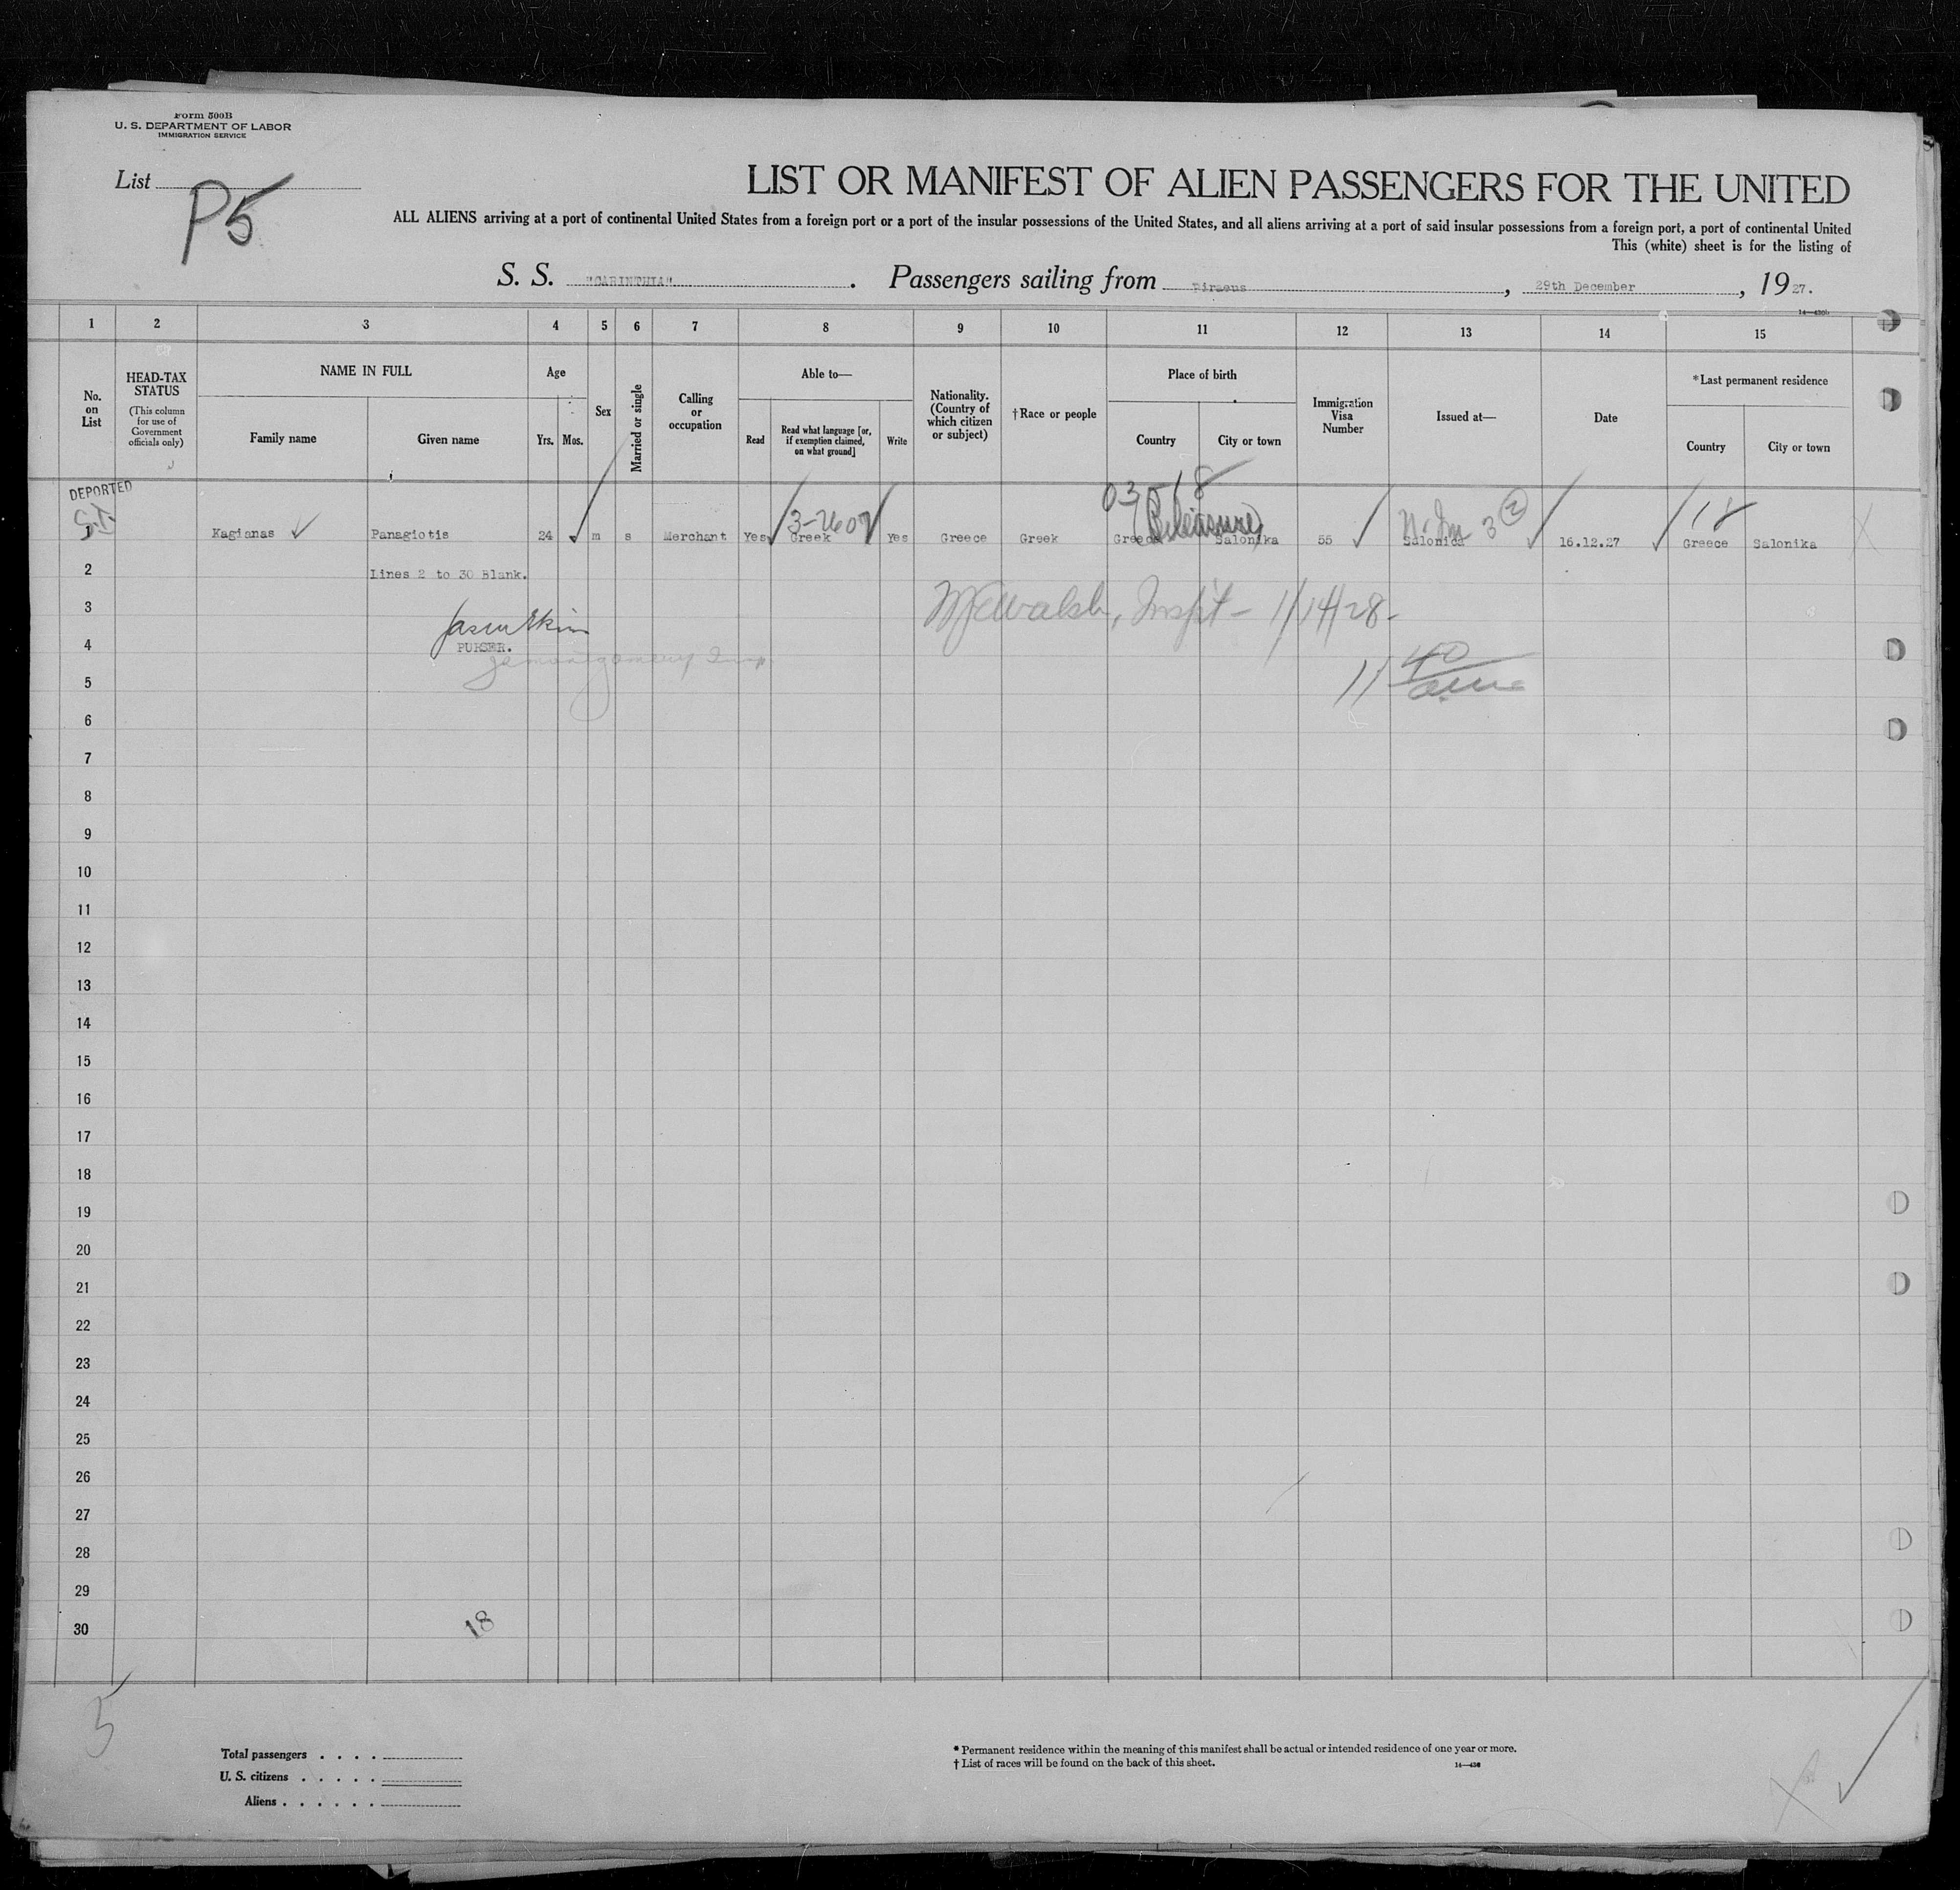 Form 500B
U. S. DEPARTMENT OF LABOR
IMMIGRATION SERVICE
List
P5
LIST OR MANIFEST OF ALIEN PASSENGERS FOR THE UNITED
ALL ALIENS arriving at a port of continental United States from a foreign port or a port of the insular possessions of the United States, and all aliens arriving at a port of said insular possessions from a foreign port, a port of continental United
This (white) sheet is for the listing of
S. S. "CARINTHIA". Passengers sailing from Piraeus, 29th December, 1927.
1 2 3 4 5 6 7 8 9 10 11 12 13 14 15
No. on List
HEAD-TAX STATUS
(This column for use of Government officials only)
NAME IN FULL
Family name Given name
Age
Yrs. Mos.
Sex
Married or single
Calling or occupation
Able to—
Read Read what language [or, if exemption claimed, on what ground] Write
Nationality. (Country of which citizen or subject)
†Race or people
Place of birth
Country City or town
Immigration Visa Number
Issued at—
Date
*Last permanent residence
Country City or town
DEPORTED
S.I.
(Pleasure)
18
1 Kagianas Panagiotis 24 m s Merchant Yes Greek Yes Greece Greek Greece Salonika 55 Salonica 16.12.27 Greece Salonika
2 Lines 2 to 30 Blank.
3
Walsh, Inspt - 1/14/28-
4
PURSER.
11 40 a.m.
5
6
7
8
9
10
11
12
13
14
15
16
17
18
19
20
21
22
23
24
25
26
27
28
29
30
18
5
Total passengers
U. S. citizens
Aliens
* Permanent residence within the meaning of this manifest shall be actual or intended residence of one year or more.
† List of races will be found on the back of this sheet.
14—430